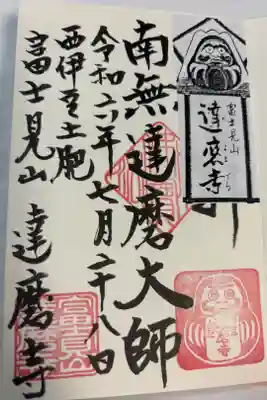 富士見山
達磨寺
南無達磨大師
令和六年七月二十八日
西伊豆土肥
富士見山 達磨寺
富士見山